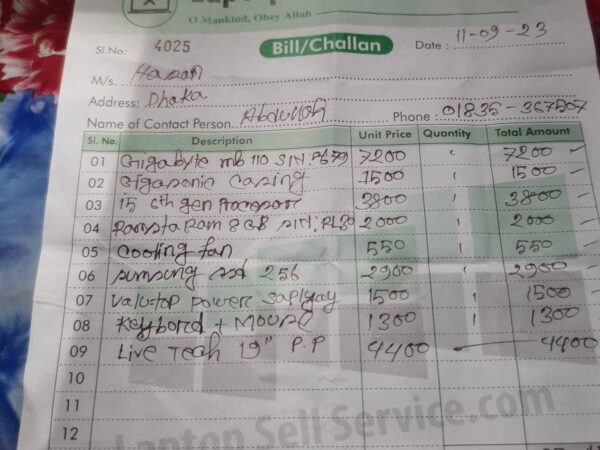 O Mankind, Obey Allah
Sl.No: 4025 Bill/Challan Date: 11-09-23
M/s. Hasan
Address: Dhaka
Name of Contact Person Abdullah Phone: 01835-367507
Sl. No. Description Unit Price Quantity Total Amount
01 Gigabyte mb 110 S/N 7200 1 7200
02 Gigasonic Casing 1500 1 1500
03 I5 6th gen 3800 1 3800
04 Ram 8GB S/N: 2000 1 2000
05 Cooling fan 550 1 550
06 sumsung ssd 256 2900 1 2900
07 Valu-top power 1500 1 1500
08 Keybord + Mouse 1300 1 1300
09 Live Tech 19" P.P 4400 4400
10
11
12
Laptop Sell Service.com